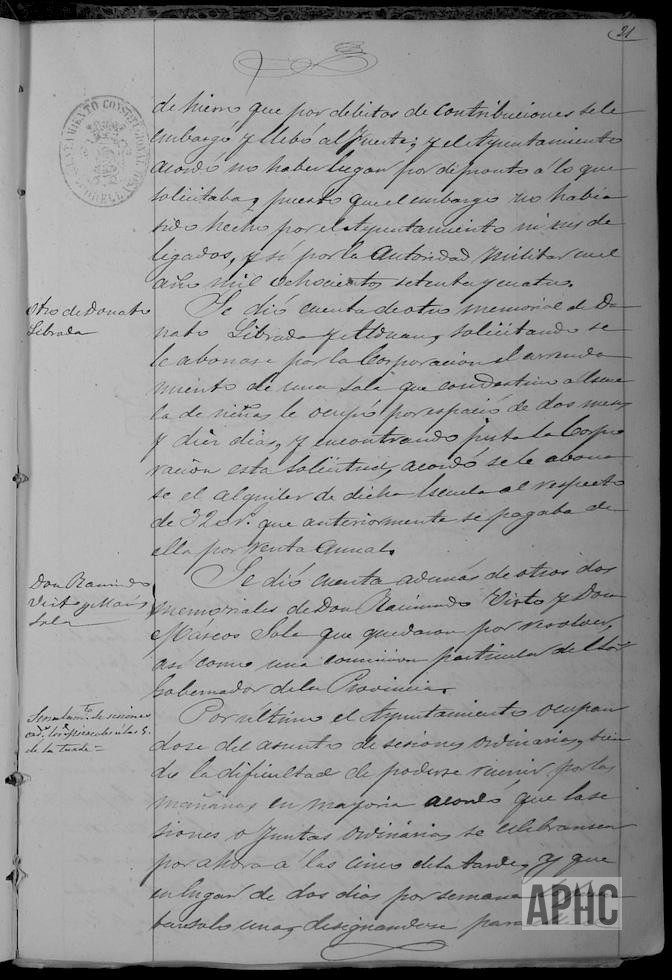 21
AYUNTAMIENTO CONSTITUCIONAL
de hierro que por debitos de contribuciones se le
embargó y llebó al Fuerte; y el Ayuntamiento
acordó no haber lugar por de pronto á lo que
solicitaba, puesto que el embargo no habia
sido hecho por el Ayuntamiento ni sus de
legados, y sí por la Autoridad Militar en el
año mil ochocientos setenta y cuatro.
Otro de Donato
Librada
Se dió cuenta de otro memorial de Do
nato Librada y Alduan, solicitando se
le abonase por la Corporacion el arrenda
miento de una sala que con destino á Escue
la de niñas le ocupó por espacio de dos meses
y diez dias, y encontrando justa la Corpo
racion esta solicitud, acordó se le abona
se el alquiler de dicha Escuela al respecto
de 320 r.^s que anteriormente se pagaba de
ella por renta annual.
Don Raimundo
Visto y Marcos
Sola
Se dió cuenta ademas de otros dos
memoriales de Don Raimundo Visto y Don
Márcos Sola que quedaron por resolver,
así como una comision particular del Sor
Gobernador de la Provincia.
de sesiones
ord.^s los miercoles á las 5
de la tarde=
Por último el Ayuntamiento ocupan
dose del asunto de sesiones ordinarias, vien
do la dificultad de poderse reunir por las
mañanas en mayoria acordó que las se
siones o Juntas ordinarias se celebrasen
por ahora á las cinco de la tarde, y que
en lugar de dos dias por semana
solo una, designandose para
APHC